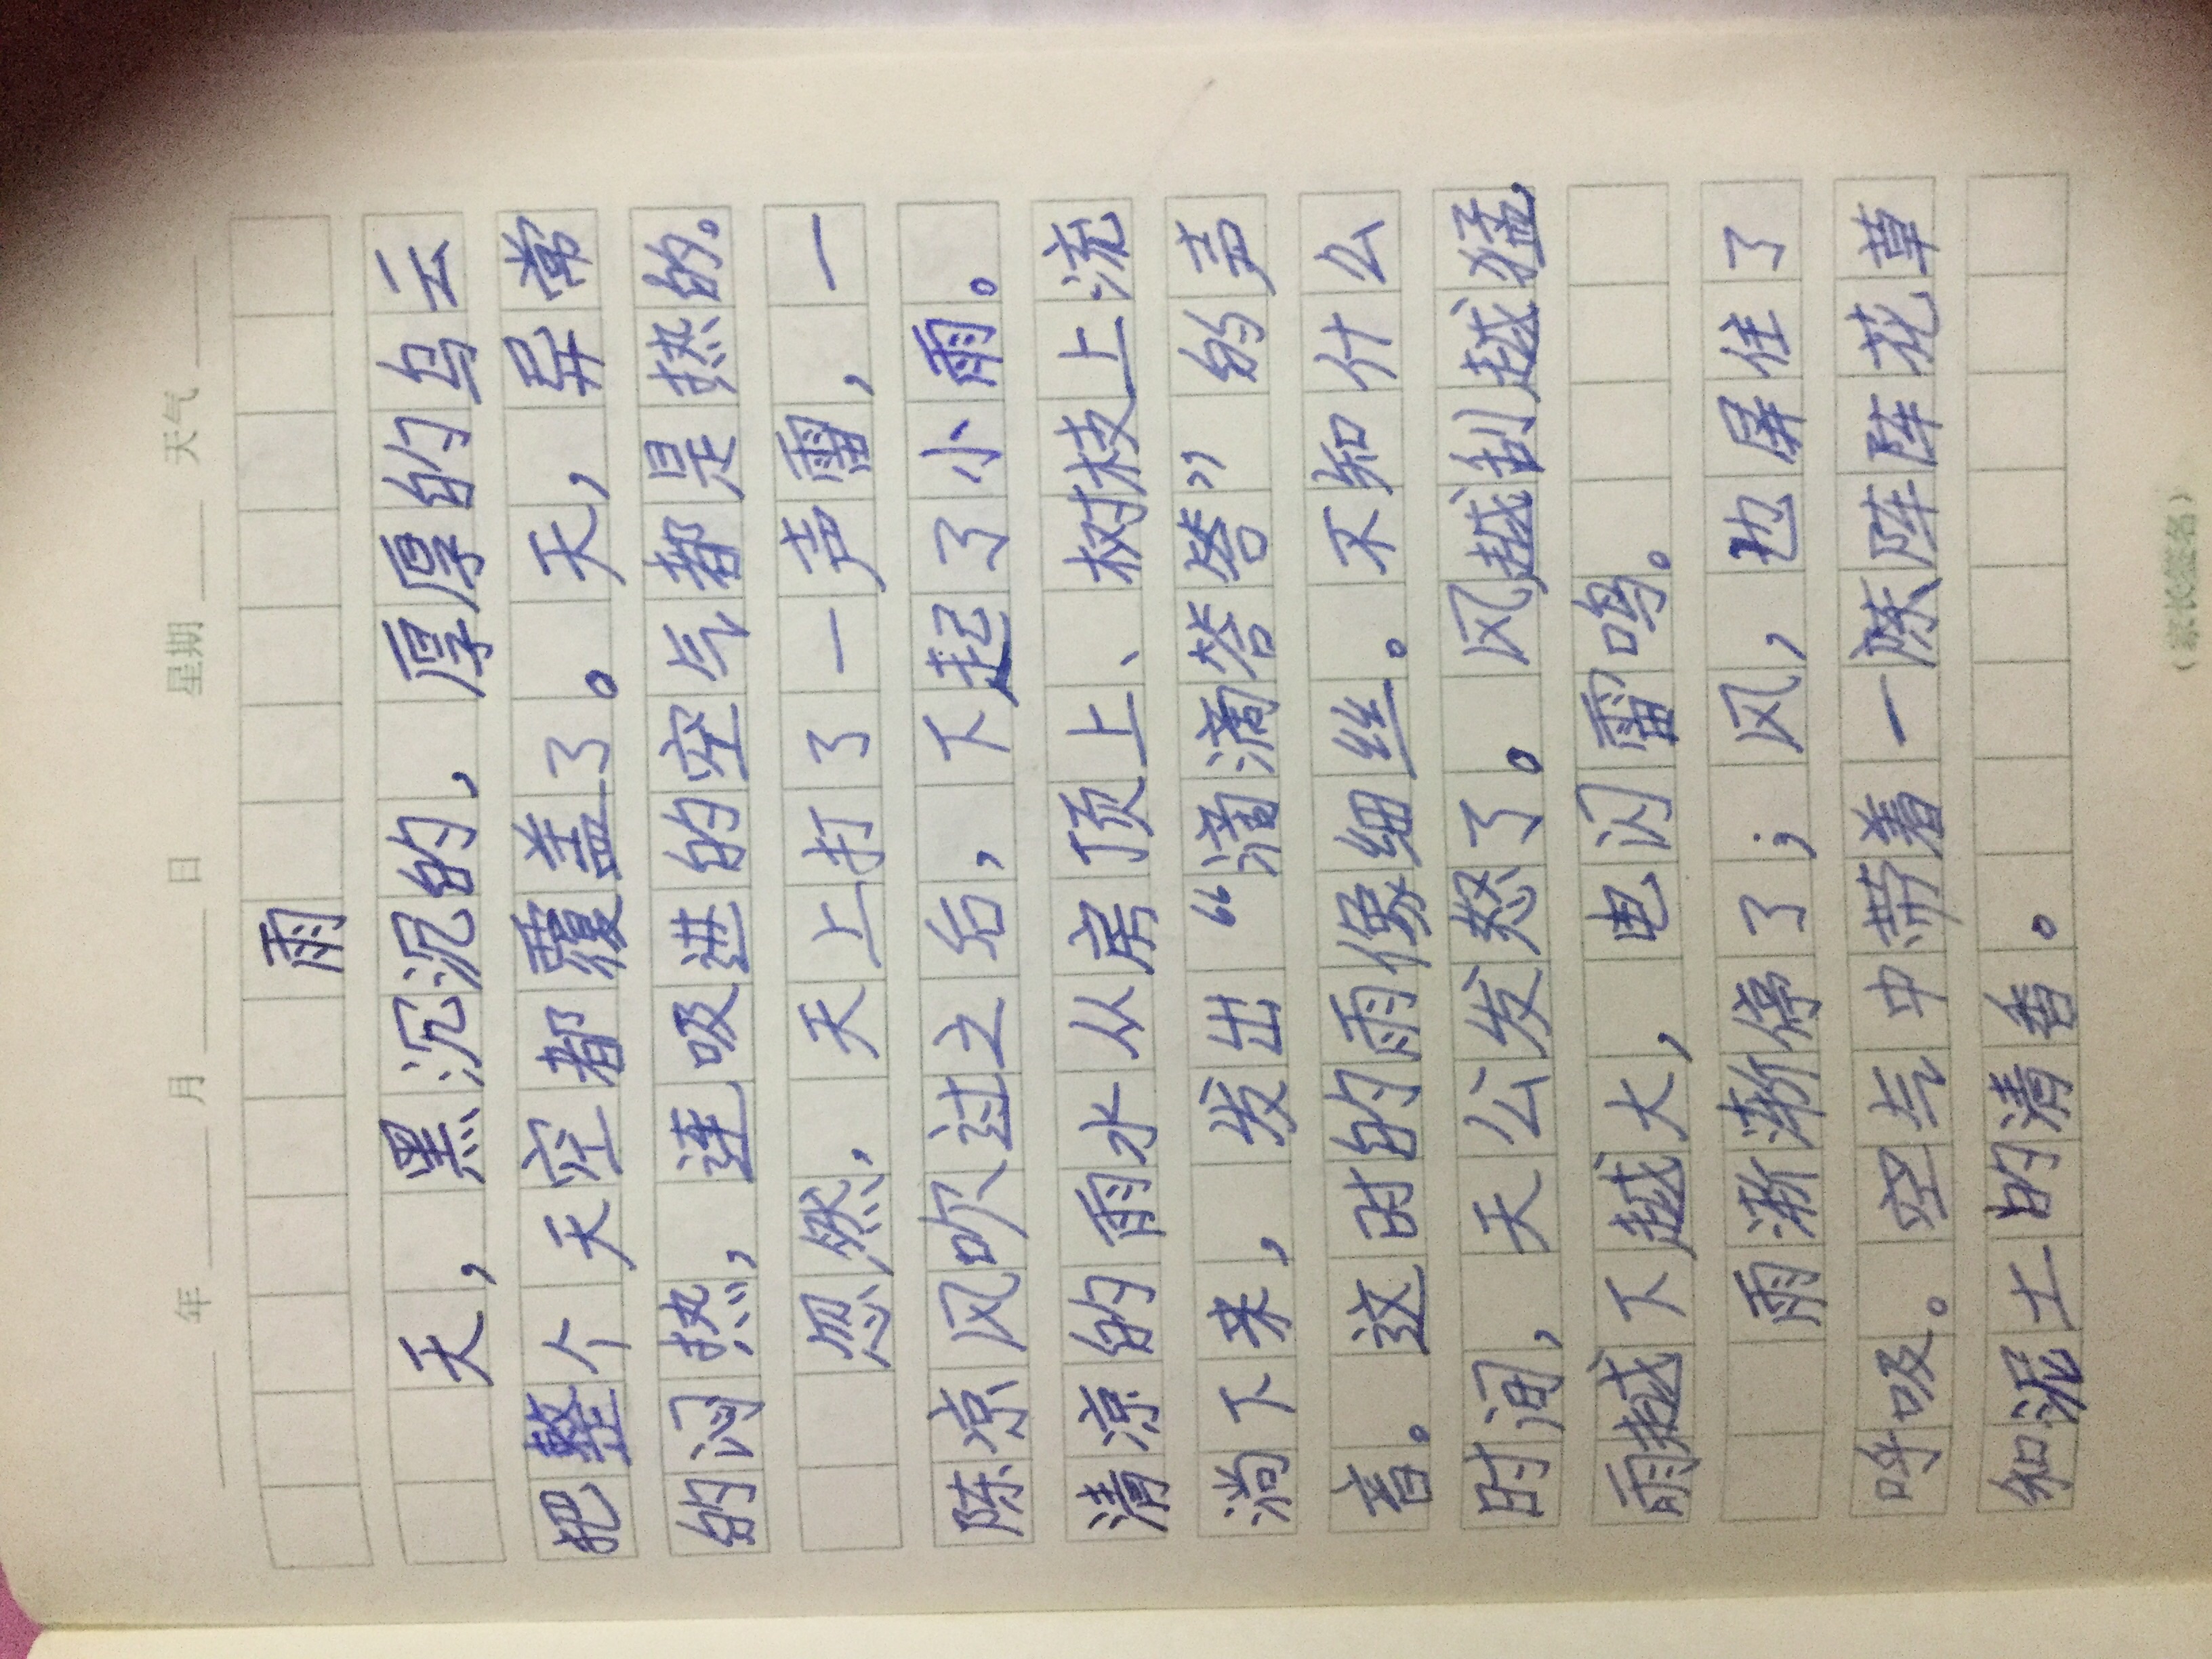 年 月 日 星期 天气
雨
天，黑沉沉的，厚厚的乌云
把整个天空都覆盖了。天，异常
的闷热，连吸进的空气都是热的。
忽然，天上打了一声雷，一
陈凉风吹过之后，下起了小雨。
清凉的雨水从房顶上、树枝上流
淌下来，发出“滴滴答答”的声
音。这时的雨像细丝。不知什么
时间，天公发怒了。风越刮越猛，
雨越下越大，电闪雷鸣。
雨渐渐停了；风，也屏住了
呼吸。空气中带着一陈阵阵花草
和泥土的清香。
（家长签名）